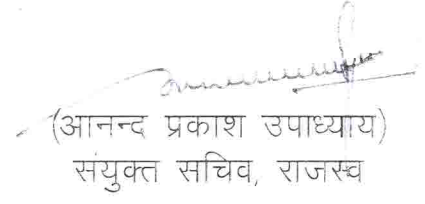 (आनन्द प्रकाश उपाध्याय)
संयुक्त सचिव, राजस्व